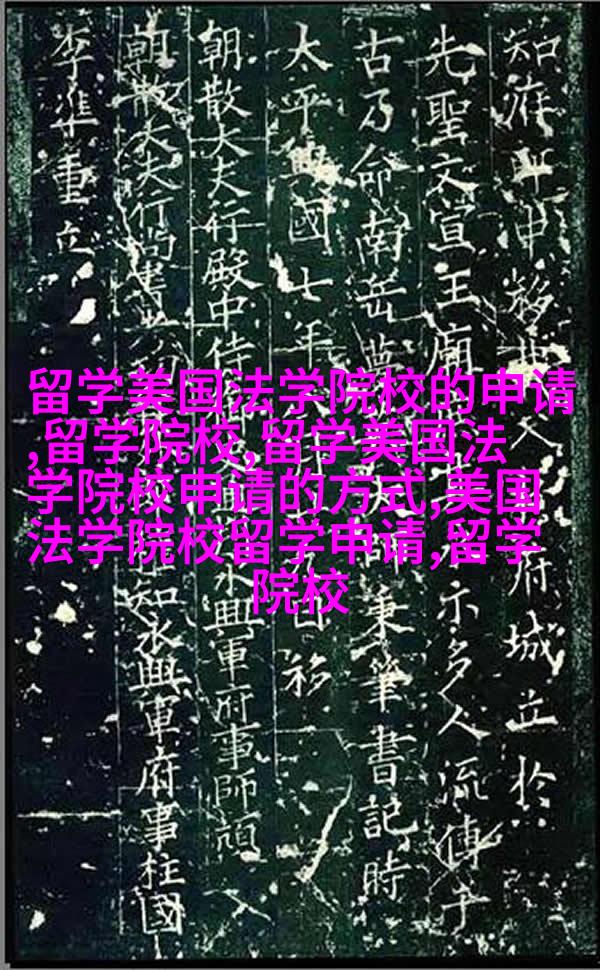 知移府城立於
先聖文宣王廟示多人流傳于
古乃命南岳秉筆書記時
太平興國七年移
朝散大夫行殿中侍永興軍府事師頏
朝散大夫行尚書知永興軍府事柱國
李準重立
留学美国法学院校的申请
,留学院校,留学美国法
学院校申请的方式,美国
法学院校留学申请,留学
院校